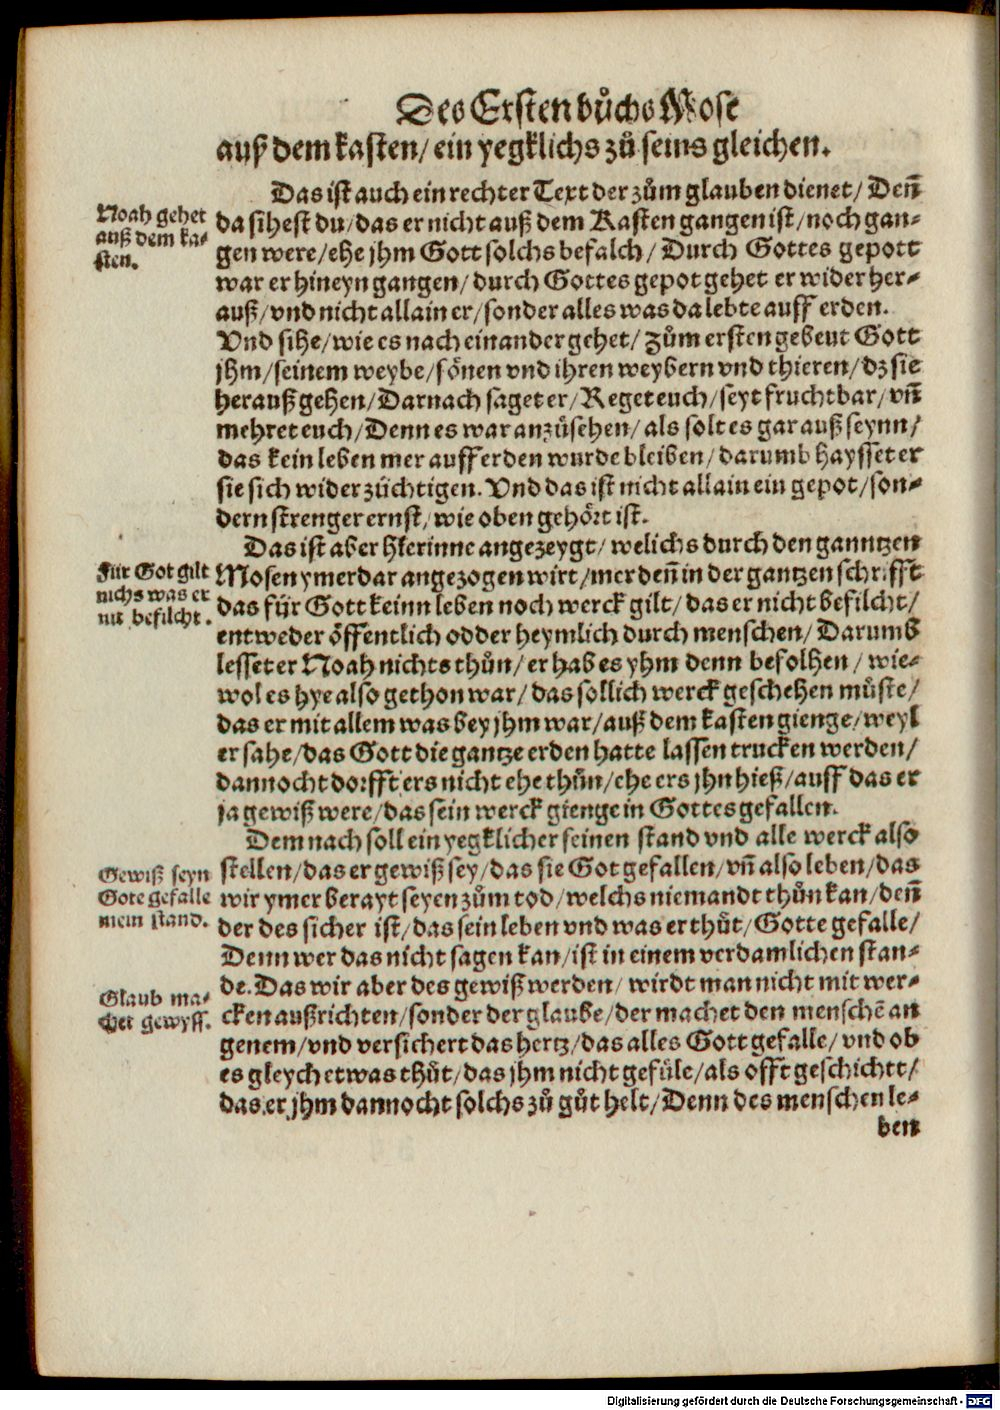 Des Ersten bůchs Mose
auß dem kasten/ ein yegklichs zů seins gleichen.
Das ist auch ein rechter Text der zům glauben dienet/ Deñ
Noah gehet
auß dem ka-
sten.
da sihest du/das er nicht auß dem Kasten gangen ist/noch gan-
gen were/ehe jhm Gott solchs befalch/ Durch Gottes gepott
war er hineyn gangen/durch Gottes gepot gehet er wider her-
auß/vnd nicht allain er/sonder alles was da lebte auff erden.
Vnd sihe/wie es nach einander gehet/ Zům ersten gebeut Gott
jhm/seinem weybe/sönen vnd ihren weybern vnd thieren/dz sie
herauß gehen/Darnach saget er/Reget euch/seyt fruchtbar/vñ
mehret euch/Denn es war anzůsehen/als solt es gar auß seynn/
das kein leben mer auff erden wurde bleiben/darumb haysset er
sie sich wider züchtigen. Vnd das ist nicht allain ein gepot/son-
dern strenger ernst/wie oben gehört ist.
Das ist aber hierinne angezeygt/welichs durch den ganntzen
Für Got gilt
nichs was er
nit befilcht.
Mosen ymerdar angezogen wirt/mer deñ in der gantzen schrifft
das für Gott keinn leben noch werck gilt/das er nicht befilcht/
entweder öffentlich odder heymlich durch menschen/Darumb
lesset er Noah nichts thůn/er hab es yhm denn befolhen/wie-
wol es hye also gethon war/das sollich werck geschehen můste/
das er mit allem was bey jhm war/auß dem kasten gienge/weyl
er sahe/das Gott die gantze erden hatte lassen trucken werden/
dannocht dorfft ers nicht ehe thůn/ehe ers jhn hieß/auff das er
ja gewiß were/das sein werck gienge in Gottes gefallen.
Demnach soll ein yegklicher seinen stand vnd alle werck also
Gewiß seyn
Gote gefalle
mein stand.
stellen/das er gewiß sey/das sie Got gefallen/vñ also leben/das
wir ymer berayt seyen zům tod/welchs niemandt thůn kan/deñ
der des sicher ist/das sein leben vnd was er thůt/Gotte gefalle/
Denn wer das nicht sagen kan/ist in einem verdamlichen stan-
de. Das wir aber des gewiß werden/ wirdt man nicht mit wer-
Glaub ma-
chet gewyss.
cken außrichten/sonder der glaube/der machet den menschē an
genem/vnd versichert das hertz/das alles Gott gefalle/vnd ob
es gleych etwas thůt/das jhm nicht gefüle/als offt geschichtt/
das er jhm dannocht solchs zů gůt helt/Denn des menschen le-
ben
Digitalisierung gefördert durch die Deutsche Forschungsgemeinschaft - DFG